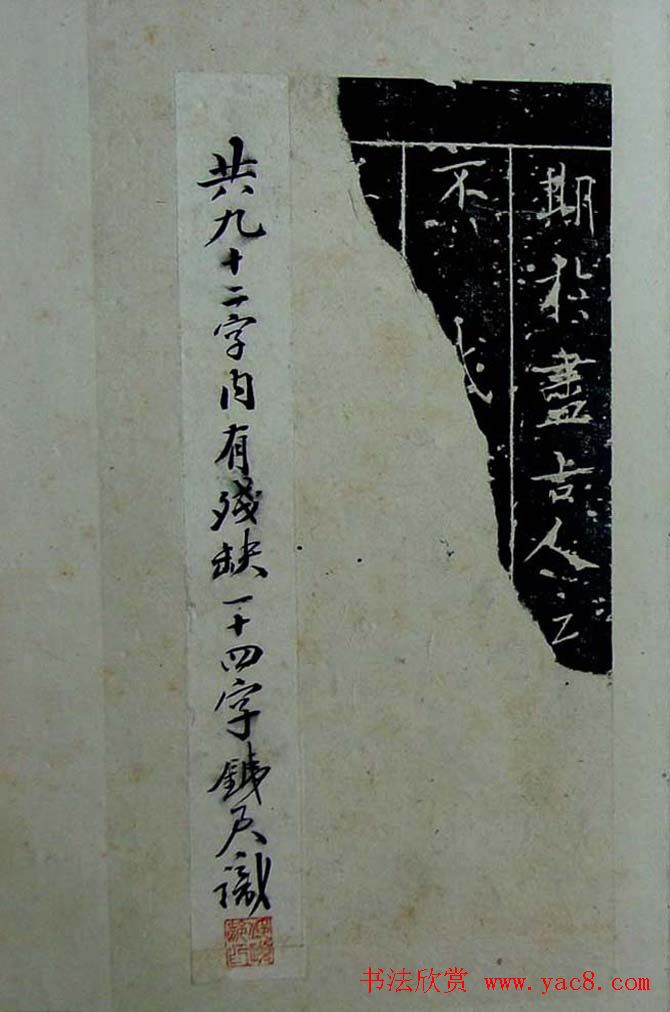 期於盡古人
不
共九十二字内有殘缺一十四字鐵識
书法欣赏 www.yac8.com